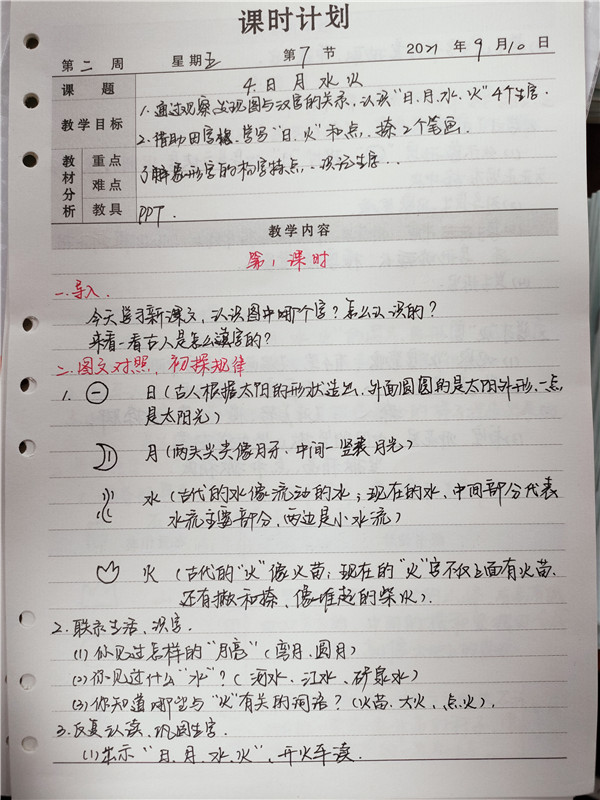 课时计划
第二周 星期五 第7节 2021年9月10日
课题 4.日月水火
教学目标 1.通过观察发现图与汉字的关系,认识"日、月、水、火"4个生字.
2.借助田字格,学写"日、火"和点、捺2个笔画.
教材分析 重点 难点 了解象形字的构字特点,识记生字.
教具 PPT.
教学内容
第1课时
一.导入.
今天学习新课文,认识图中哪个字?怎么认识的?
来看一看古人是怎么造字的?
二.图文对照,初探规律
1. 日(古人根据太阳的形状造出,外面圆圆的是太阳外形,一点
是太阳光)
月(两头尖尖像月牙,中间一竖表月光)
水(古代的水像流动的水;现在的水,中间部分代表
水流主要部分,两边是小水流)
火(古代的"火"像火苗;现在的"火"字不仅上面有火苗,
还有撇和捺,像堆起的柴火).
2.联系生活,识字.
(1)你见过怎样的"月亮"(弯月、圆月)
(2)你见过什么"水"?(河水、江水、矿泉水)
(3)你知道哪些与"火"有关的词语?(火苗、大火、点火).
3.反复认读,巩固生字.
(1)出示"日、月、水、火",开火车读.